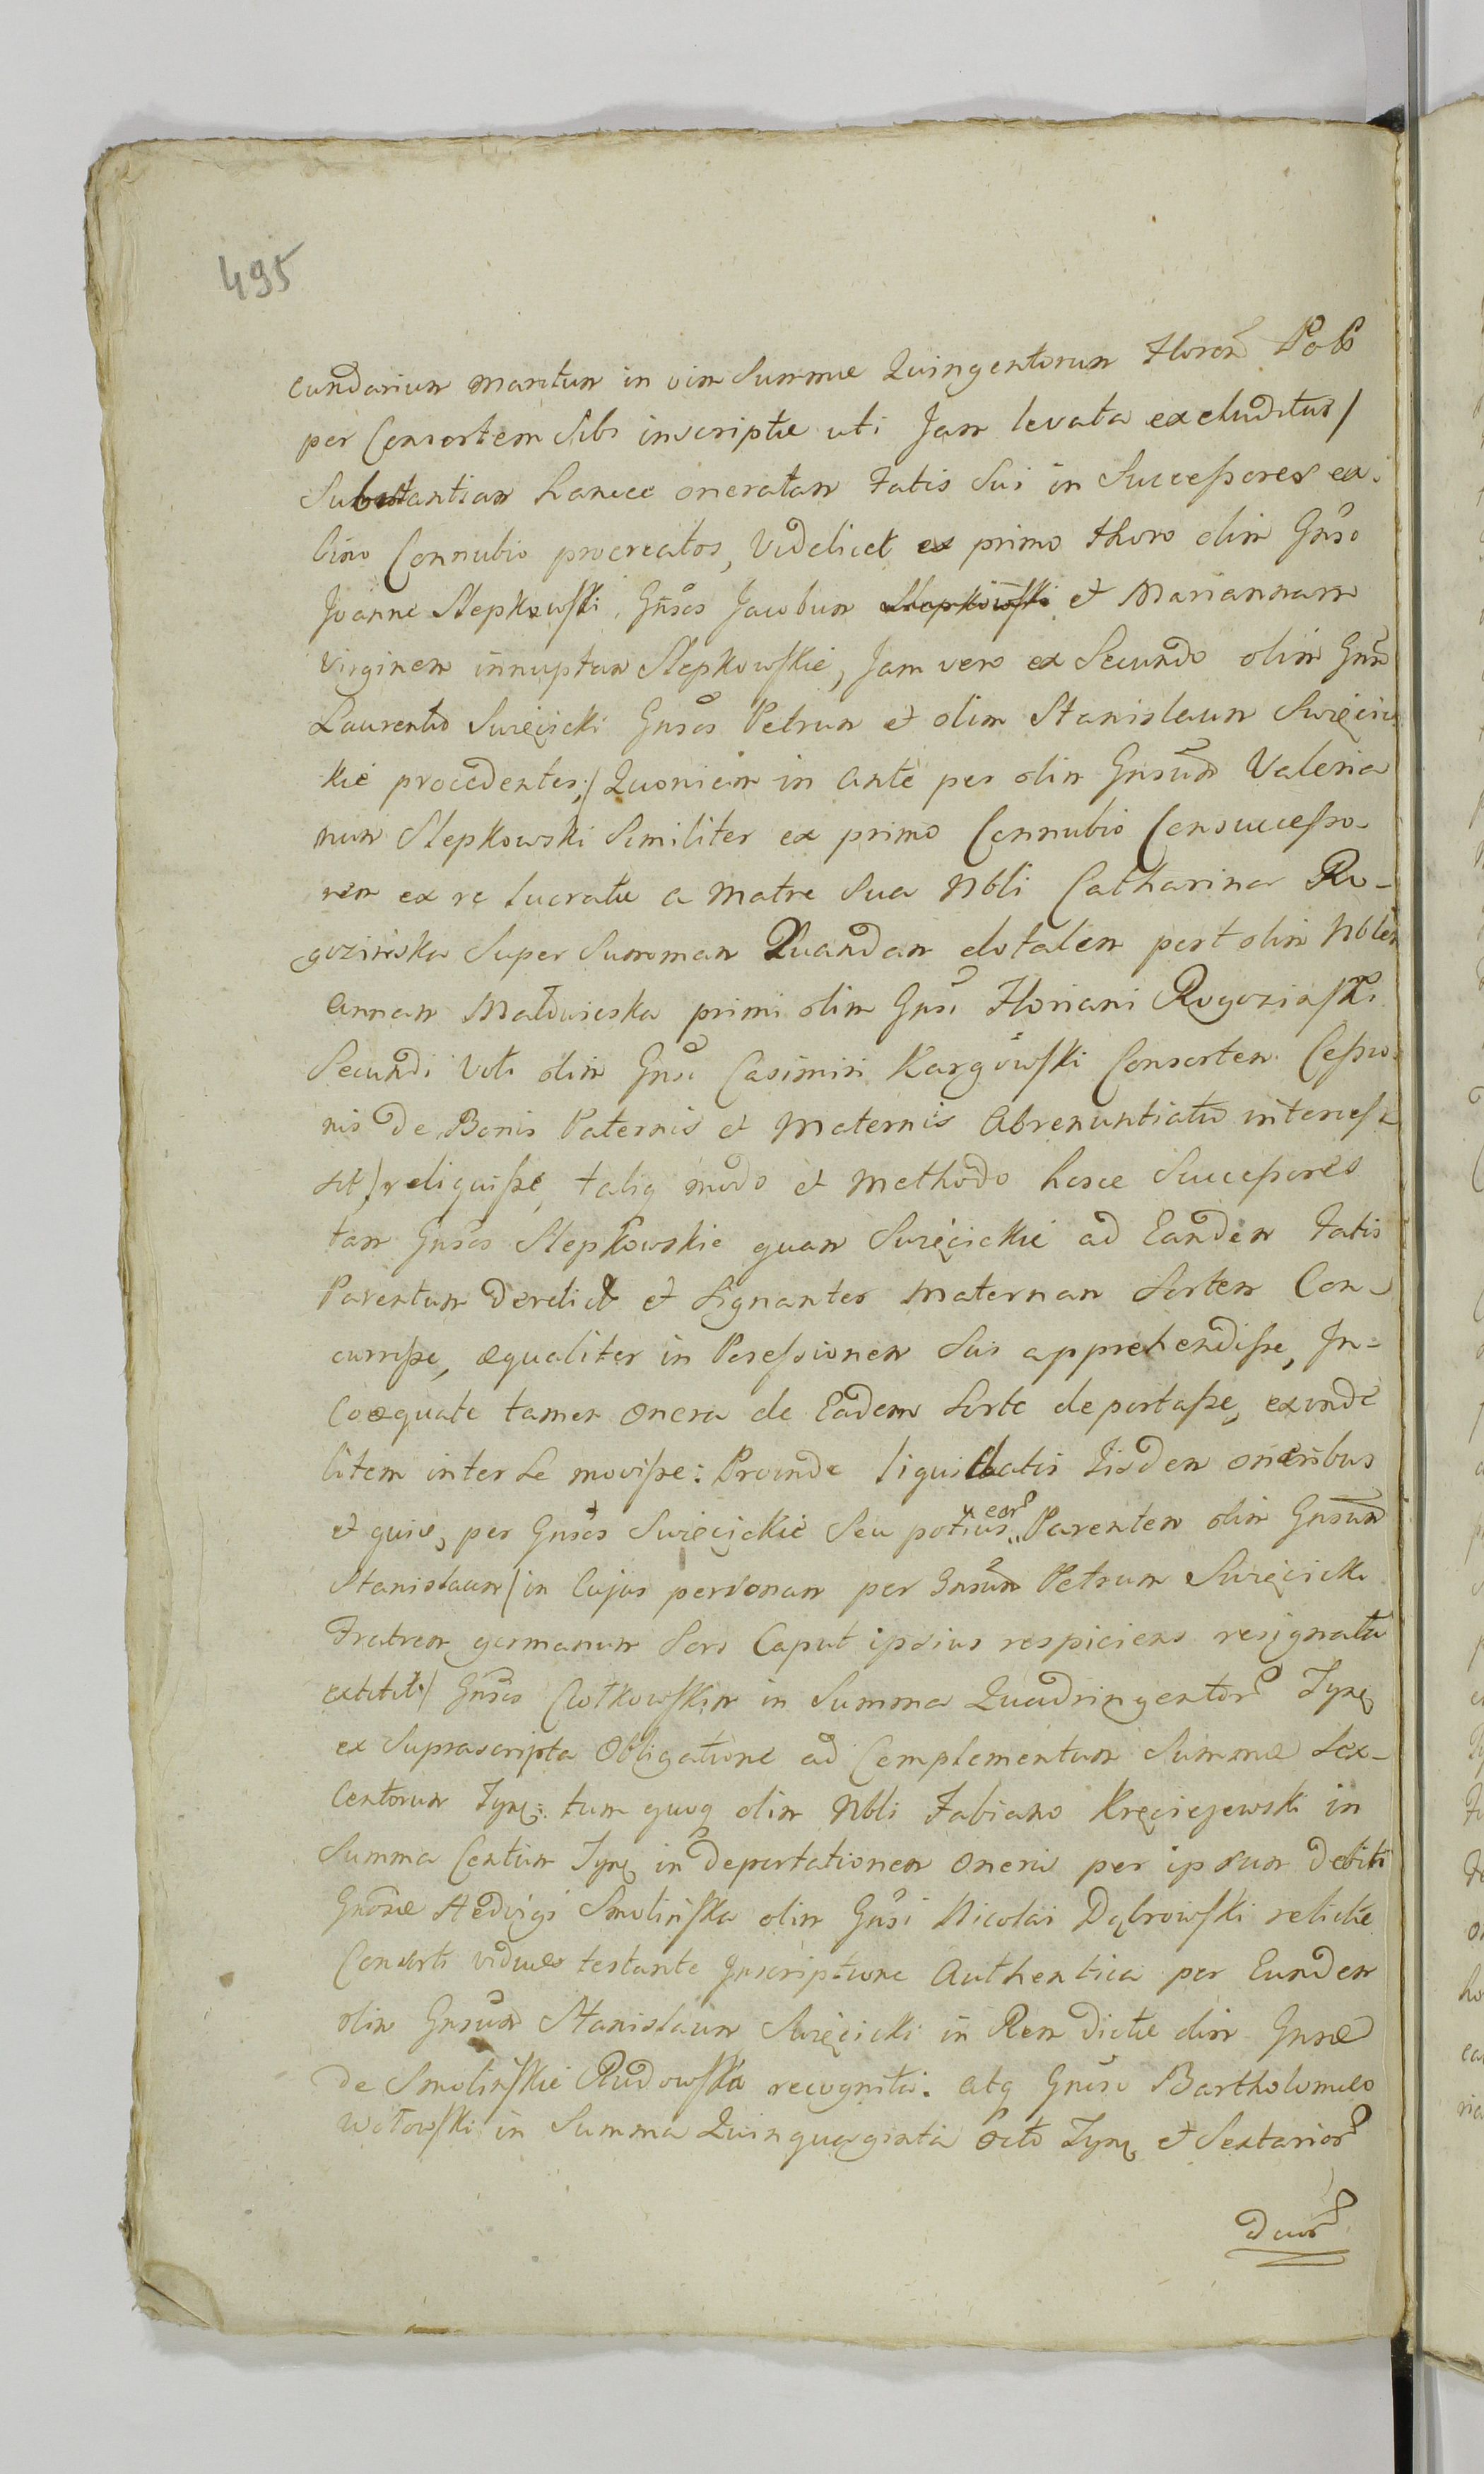 495
cundarium maritum in vim Summæ Quingentorum Floren Pol
per Consortem Sibi inscriptæ uti Jam levata excluditur/
Substantiam hancce oneratam Fatis Sui in Successores ex
bino Connubio procreatos, Videlicet ex primo thoro olim Gnso
Joanne Slepkowski, Gnsos Jacobum Slepkowski et Mariannam
Virginem innuptam Slepkowskie, Jam vero ex Secundo olim Gnso
Laurentio Swięcicki Gnsos Petrum et olim Stanislaum Swięcic-
kie procedentes;/ Quoniam in ante per olim Gnsum Valeria
num Slepkowski Similiter ex primo Connubio Consuccesso-
rem ex re lucratæ a Matre Sua Nbli Catharina Ro-
gozinska Super Summam Quandam dotalem post olim Nblem
Annam Malowieska primi olim Gnsi Floriani Rogozinski
Secundi Voti olim Gnsi Casimiri Kargowski Consortem Cessio-
nis de Bonis Paternis et Maternis Abrenuntiatio intercess-
sit/ reliquisse, taliq modo et Methodo hosce Successores
tam Gnsos Slepkowskie quam Swięcickie ad Eandem Fatis
Parentum derelict et Signanter Maternam Sortem Con-
currisse, æqualiter in Possessionem Sui apprehendisse, In-
Coæquate tamen Onera de Eadem Sorte deportasse, exinde
litem inter Se movisse: Proinde liquidatis Iisdem oneribus
et quia, per Gnsos Swięcickie Seu potius eor Parentem olim Gnsum
Stanislaum /in Cujus personam per Gnsum Petrum Swięcicki
Fratrem germanum Sors Caput ipsius respiciens resignata
extitit/ Gnsos Clotkowskim in Summa Quadringentor Tynf
ex Suprascripta Obligatione ad Complementum Summæ Sex-
Centorum Tynf: tum quoq olim Nbli Fabiano Kręciejewski in
Summa Centum Tynf in deportationem Oneris per ipsum debiti
Gnosæ Hedvigi Smolinska olim Gnsi Nicolai Dąbrowski relictæ
Consorti viduæ testante Inscriptione Authentica per Eundem
olim Gnsum Stanislaum Swięcicki in Rem dictæ olim Gnsæ
de Smolinskie Rudowska recognita. atq Gnso Bartholomeo
Witowski in Summa Quinquaginta Octo Tynf et Sextarior
duor